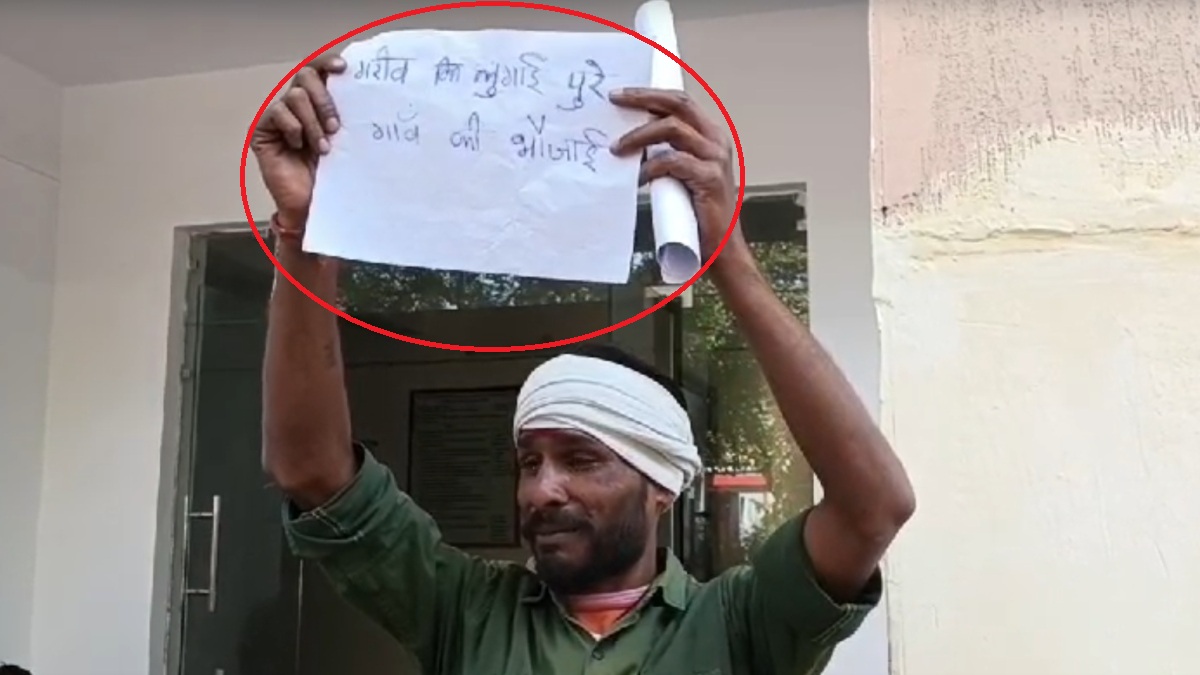 गरीब कि लुगाई पुरे
गाँव की भौजाई